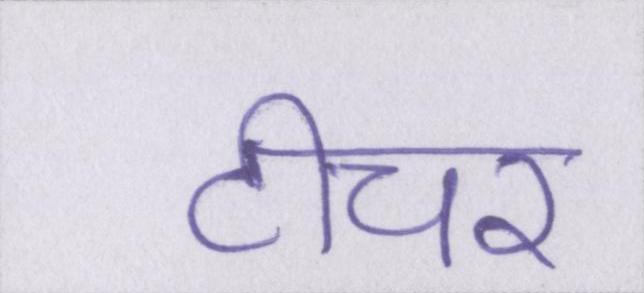 टीचर